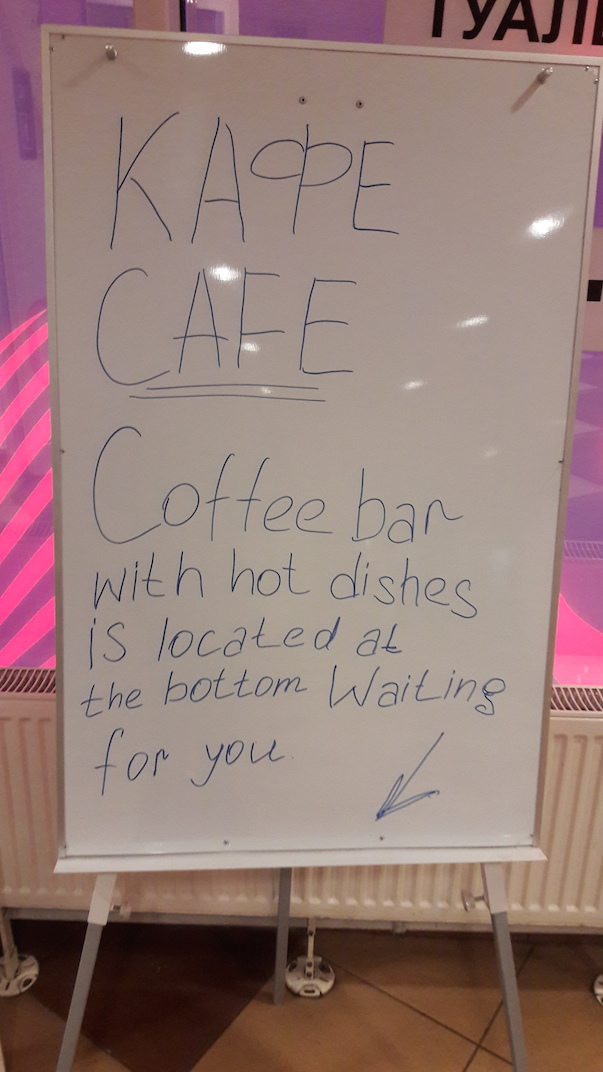 КАФЕ
CAFE
Coffee bar
with hot dishes
is located at
the bottom Waiting
for you.